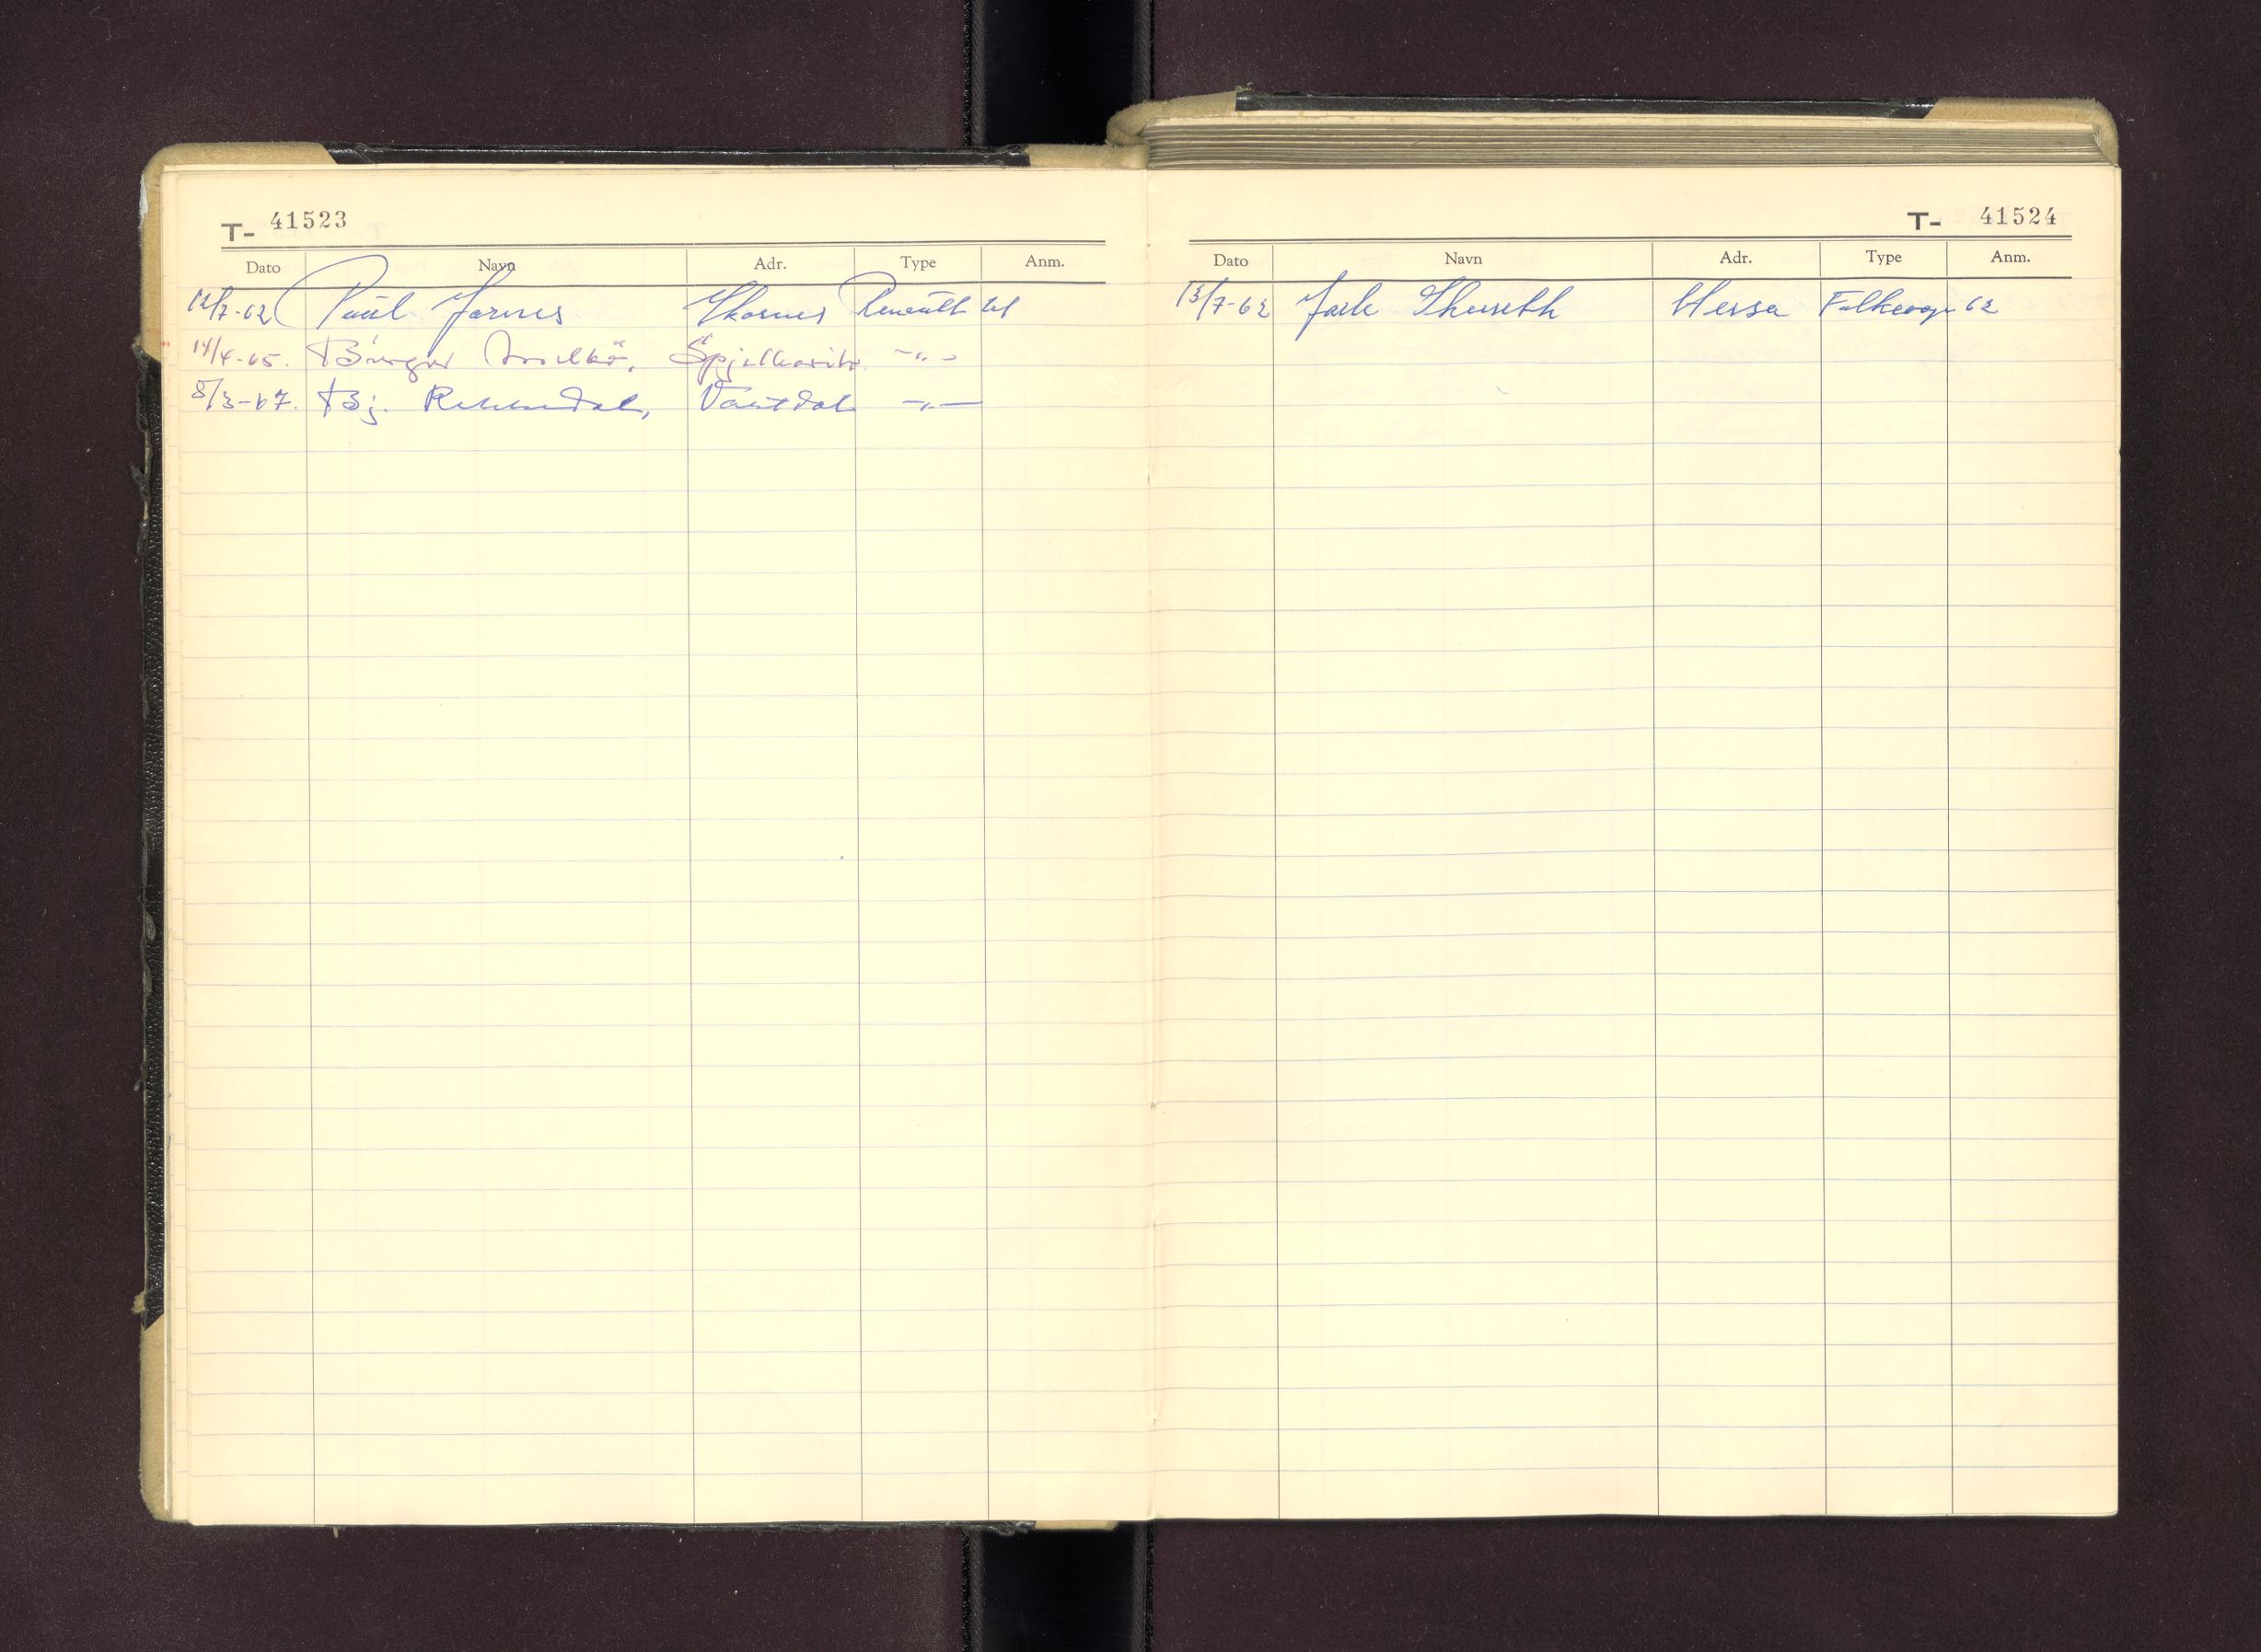 T- 41523
Dato Navn Adr. Type Anm.
12/7-62 Paul Jarnes Skarnes Renault 61
14/4-65. Birger Spjelkavik -"-
8/3-67. Bj. -"-
T- 41524
Dato Navn Adr. Type Anm.
13/7-62 Jarle Hessa Folkevogn 62